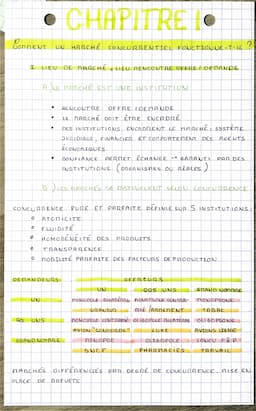 CHAPITRE 1
COMMENT UN MARCHÉ CONCURRENTIEL FONCTIONNE-T-IL ?
I. LIEU DE MARCHÉ, LIEU RENCONTRE OFFRE / DEMANDE
A) LE MARCHÉ EST UNE INSTITUTION
• RENCONTRE OFFRE / DEMANDE
• LE MARCHÉ DOIT ÊTRE ENCADRÉ
• DES INSTITUTIONS, ENCADRENT LE MARCHÉ : SYSTÈME
JURIDIQUE, FINANCIER ET COMPORTEMENT DES AGENTS
ÉCONOMIQUES
• CONFIANCE PERMET ÉCHANGE → GARANTI PAR DES
INSTITUTIONS (ORGANISMES OU RÈGLES)
B) LES MARCHÉS SE DISTINGUENT SELON CONCURRENCE
CONCURRENCE PURE ET PARFAITE DÉFINIE SUR 5 INSTITUTIONS :
ATOMICITÉ
FLUIDITÉ
HOMOGÉNÉITÉ DES PRODUITS
TRANSPARENCE
MOBILITÉ PARFAITE DES FACTEURS DE PRODUCTION
DEMANDEURS OFFREURS
UN QQS UNS GRAND NOMBRE
UN MONOPOLE BILATÉRAL MONOPSONE
ARMEMENT TABAC
QQS UNS MONOPOLE OLIGOPOLE BILATÉRAL OLIGOPSONE
AVION LUXE AVIONS LIGNE
GRAND NOMBRE MONOPOLE OLIGOPOLE
S.N.C.F PHARMACIES TRAVAIL
MARCHÉS DIFFÉRENCIÉS PAR DEGRÉ DE CONCURRENCE. MISE EN
PLACE DE BREVETS